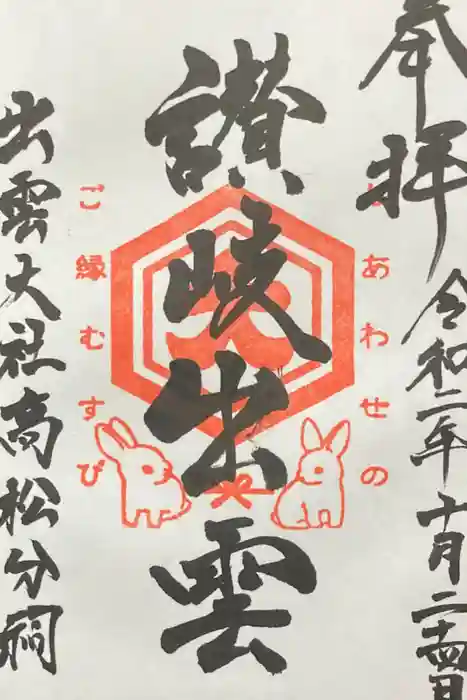 奉拝
令和二年十月二十四日
しあわせの
讃岐出雲
大
ご縁むすび
出雲大社高松分祠